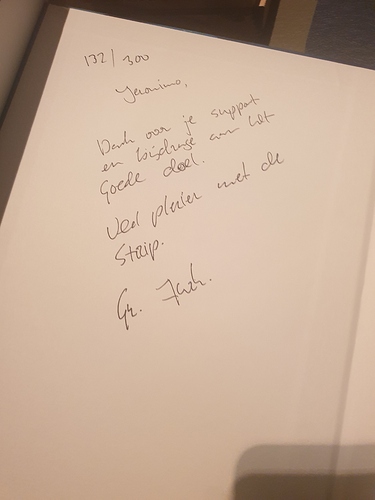 132/300
Jeronimo,
Dank voor je support
en bijdrage aan het
Goede doel.
Veel plezier met de
Strip.
Gr.